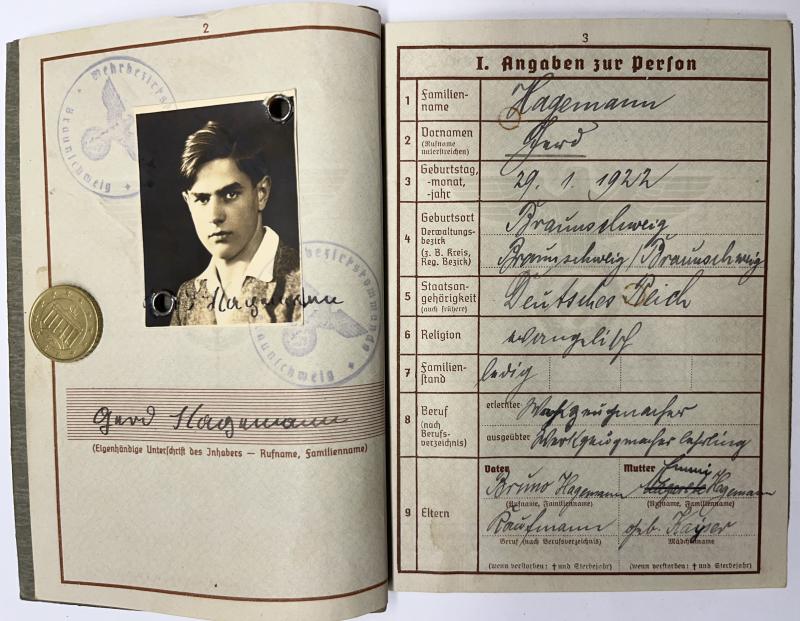 2
Wehrbezirkskommando
Braunschweig
Hagemann
Wehrbezirkskommando
Braunschweig
Gerd Hagemann
(Eigenhändige Unterschrift des Inhabers — Rufname, Familienname)
3
I. Angaben zur Person
1 Familien-
name
Hagemann
2 Vornamen
(Rufname
unterstreichen)
Gerd
3 Geburtstag,
-monat,
-jahr
29. 1. 1922
4 Geburtsort
Verwaltungs-
bezirk
(z. B. Kreis,
Reg. Bezirk)
Braunschweig
Braunschweig/Braunschweig
5 Staatsan-
gehörigkeit
(auch frühere)
Deutsches Reich
6 Religion
evangelisch
7 Familien-
stand
ledig
8 Beruf
(nach
Berufs-
verzeichnis)
erlernter
ausgeübter Werkzeugmacherlehrling
9 Eltern
Vater
Bruno Hagemann
(Rufname, Familienname)
Kaufmann
Beruf (nach Berufsverzeichnis)
(wenn verstorben: † und Sterbejahr)
Mutter Emmi
Hagemann
(Rufname, Familienname)
geb. Kayser
Mädchenname
(wenn verstorben: † und Sterbejahr)